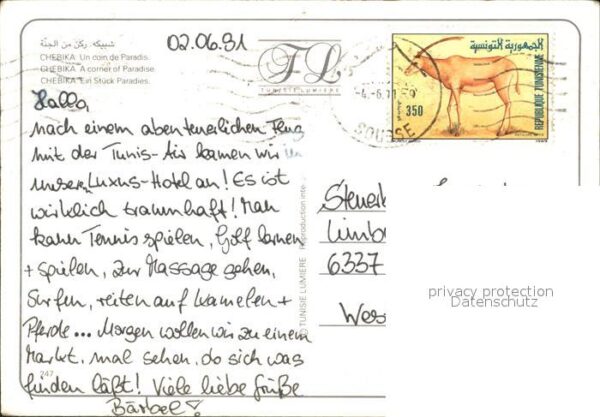 شبيكه. ركن من الجنّة
CHEBIKA. Un coin de Paradis.
CHEBIKA. A corner of Paradise
CHEBIKA. Ein Stück Paradies.
02.06.91
TL
TUNISIE LUMIERE
-4.-6.
SOUSSE
الجمهورية التونسية
350
REPUBLIQUE TUNISIENNE
Hallo,
nach einem abenteuerlichen Flug
mit der Tunis-Air kamen wir in
unser Luxus-Hotel an! Es ist
wirklich traumhaft! Man
kann Tennis spielen, Golf lernen
+ spielen, zur Massage gehen,
Surfen, reiten auf Kamelen +
Pferde... Morgen wollen wir zu einem
Markt, mal sehen, do sich was
finden läßt! Viele liebe Grüße
Bärbel!
247
© TUNISIE LUMIERE Reproduction inte
Steuerb
Limb
6337
Wes
privacy protection
Datenschutz